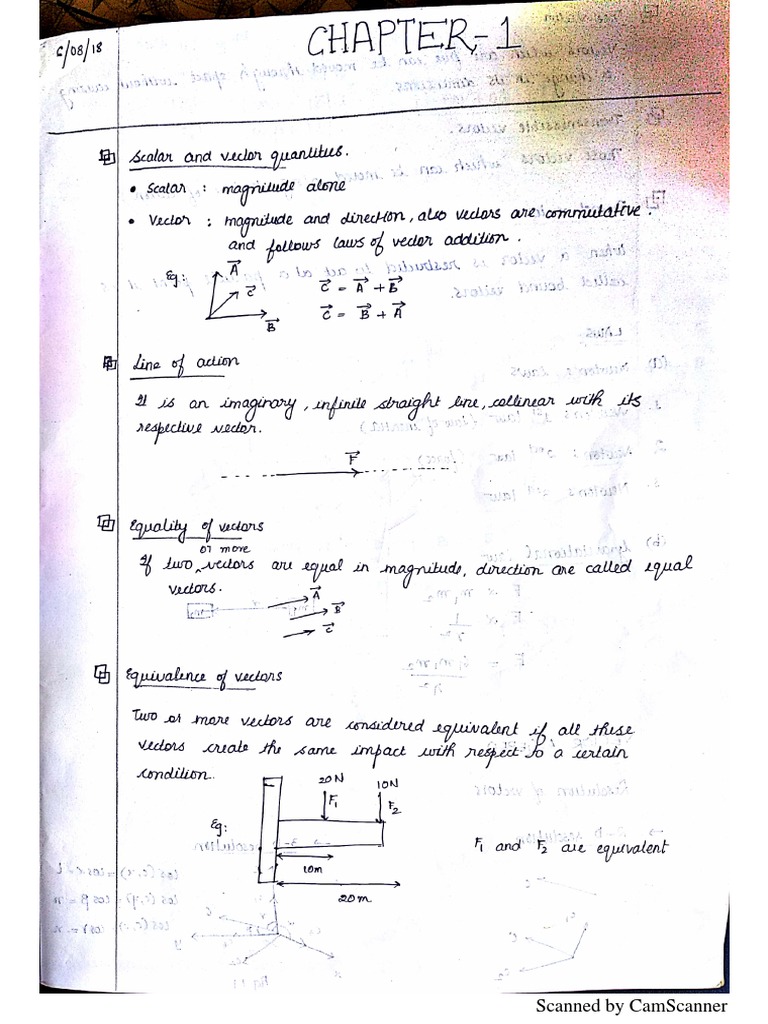 6/08/18
CHAPTER-1
Scalar and vector quantities.
• Scalar : magnitude alone
• Vector : magnitude and direction, also vectors are commutative.
and follows laws of vector addition.
Eg:
A
C
B
C = A + B
C = B + A
Line of action
It is an imaginary, infinite straight line, collinear with its
respective vector.
F
Equality of vectors
or more
If two vectors are equal in magnitude, direction are called equal
vectors.
A
B
C
Equivalence of vectors
Two or more vectors are considered equivalent if all these
vectors create the same impact with respect to a certain
condition.
20N
10N
F1
F2
Eg:
F1 and F2 are equivalent
10m
20m.
Scanned by CamScanner